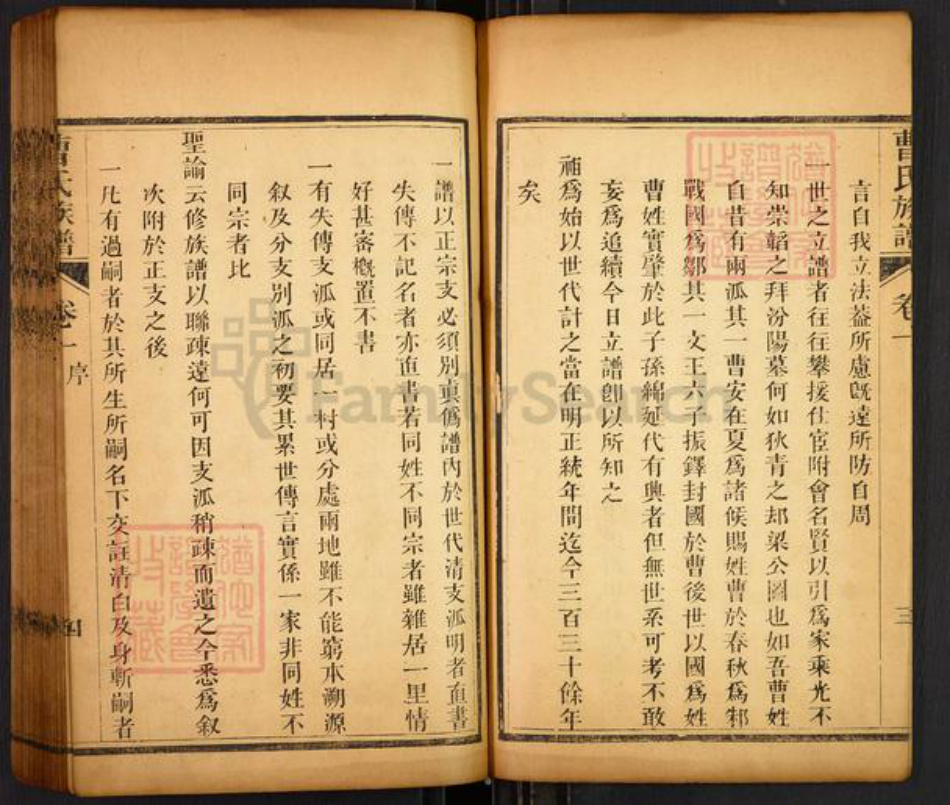 曹氏族譜 卷一 三
言自我立法葢所慮旣遠所防自周
一世之立譜者往往攀援仕宦附會名賢以引爲家乘光不
知崇韜之拜汾陽墓何如狄青之却梁公圖也如吾曹姓
自昔有兩派其一曹安在夏爲諸侯賜姓曹於春秋爲邾
戰國爲鄒其一文王六子振鐸封國於曹後世以國爲姓
曹姓實肇於此子孫綿延代有興者但無世系可考不敢
妄爲追續今日立譜卽以所知之
補爲始以世代計之當在明正統年間迄今三百三十餘年
矣
一譜以正宗支必須別眞僞譜內於世代清支派明者直書
失傳不記名者亦直書若同姓不同宗者雖雜居一里情
好甚密槪置不書
一有失傳支派或同居一村或分處兩地雖不能窮本溯源
叙及分支別派之初要其累世傳言實係一家非同姓不
同宗者比
聖諭云修族譜以聯疎遠何可因支派稍疎而遺之今悉爲叙
次附於正支之後
一凡有過嗣者於其所生所嗣名下交註清白及身斬嗣者
曹氏族譜 卷一 序 四
FamilySearch